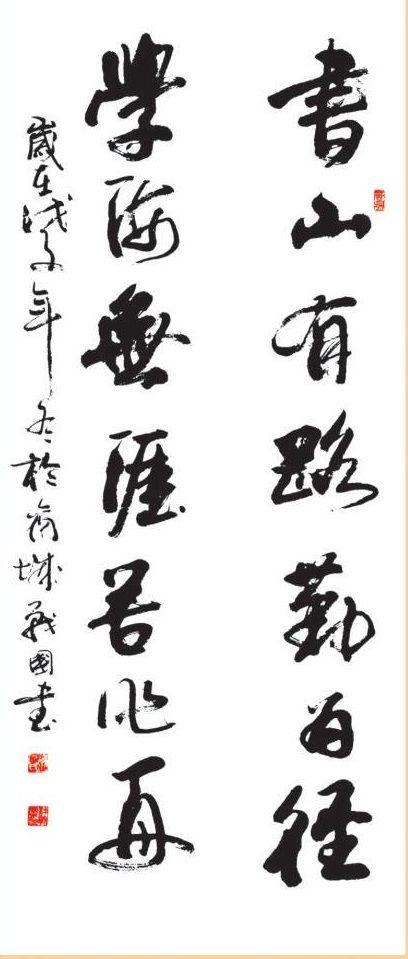 書山有路勤為徑
學海無涯苦作舟
歲在戊子年冬於商城戰國書